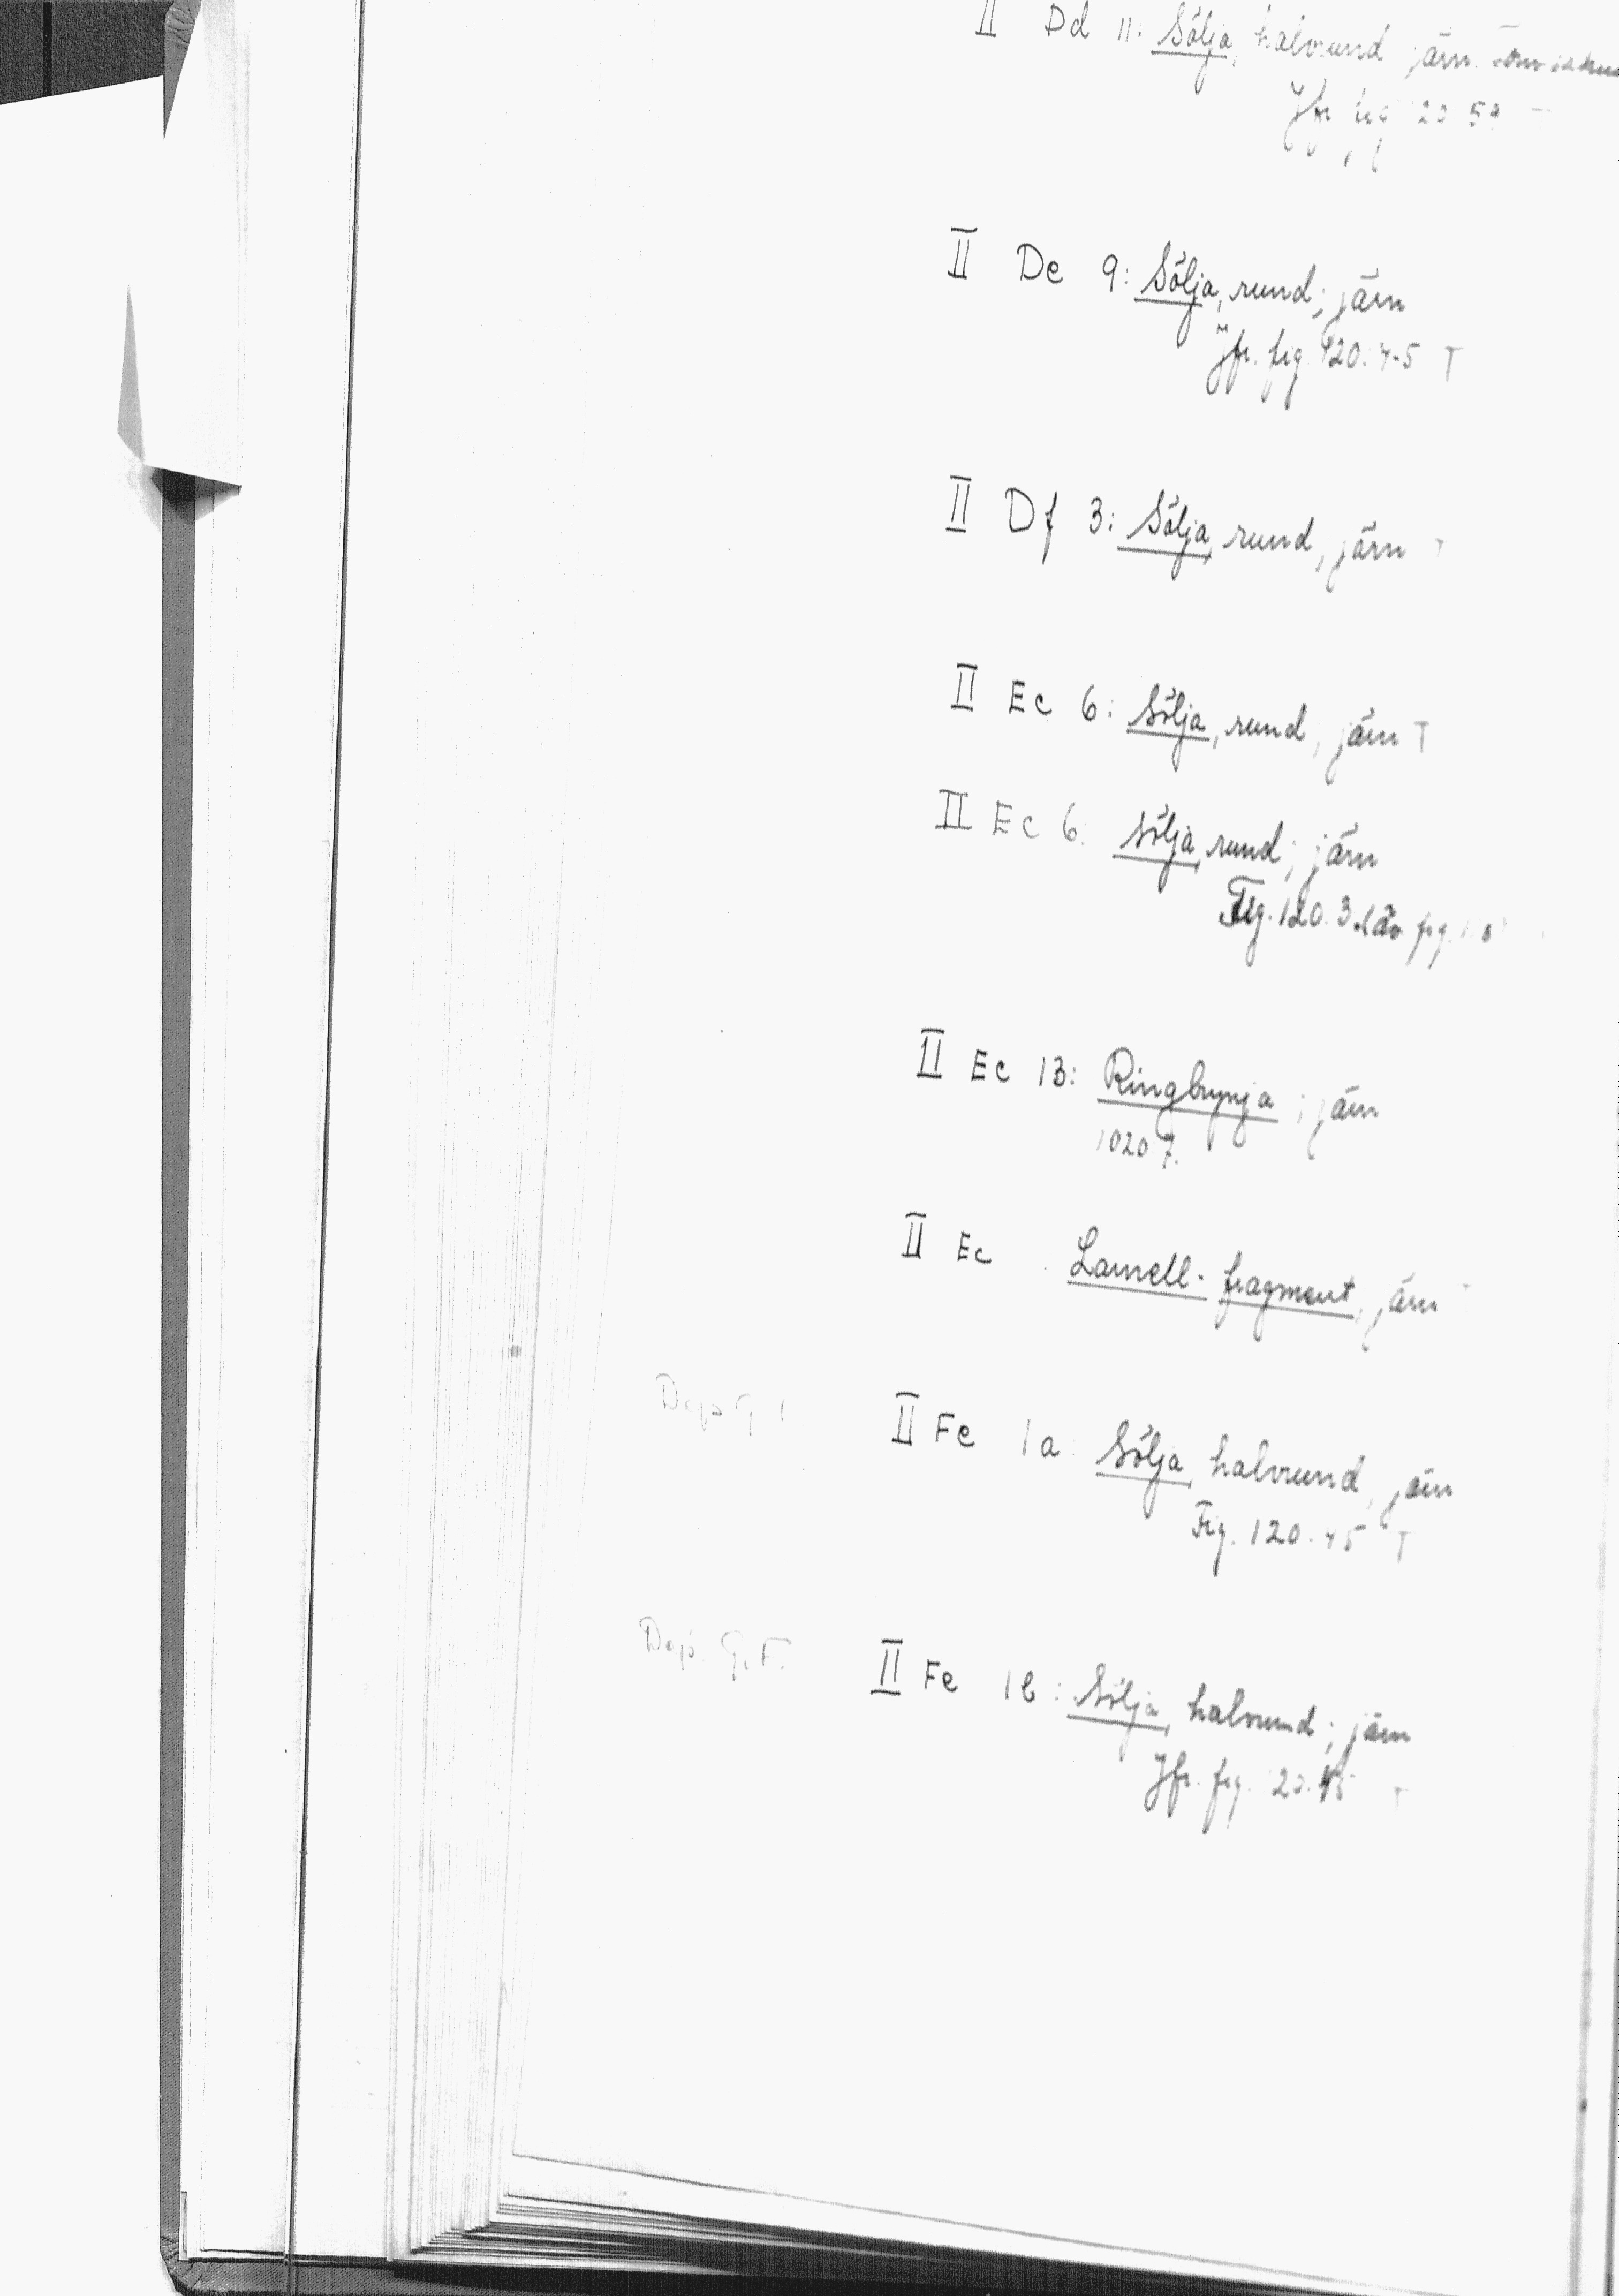 II Dd 11: Sölja, halvrund järn
Jfr fig 20 59
II De 9: Sölja, rund; järn
Jfr. fig. 120:4-5 T
II Df 3: Sölja, rund, järn T
II Ec 6: Sölja, rund, järn T
II Ec 6: Sölja, rund; järn
Fig. 120.3 fig.
II Ec 13: Ringbrynja; järn
1020 7.
II Ec Lamell-fragment, järn
Dep G
II Fe 1a: Sölja, halvrund, järn
Fig. 120.45 T
Dep. G.F.
II Fe 1b: Sölja, halvrund; järn
Jfr. fig. 20.45 T